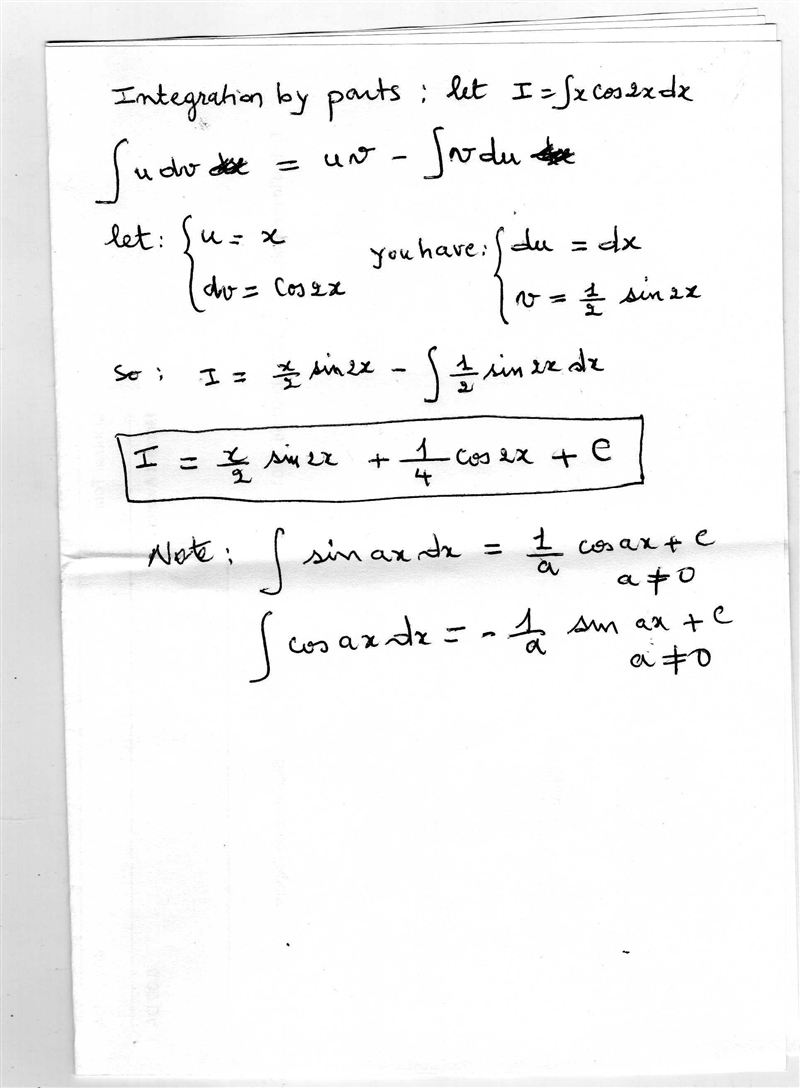 Integration by parts : let I = ∫x cos2x dx
∫u dv = uv - ∫v du
let : { u = x   dv = cos2x   you have : { du = dx   v = 1/2 sin2x
so : I = x/2 sin2x - ∫ 1/2 sin2x dx
I = x/2 sin2x + 1/4 cos2x + C
Note : ∫ sin ax dx = 1/a cos ax + c   a ≠ 0
∫ cos ax dx = - 1/a sin ax + c   a ≠ 0